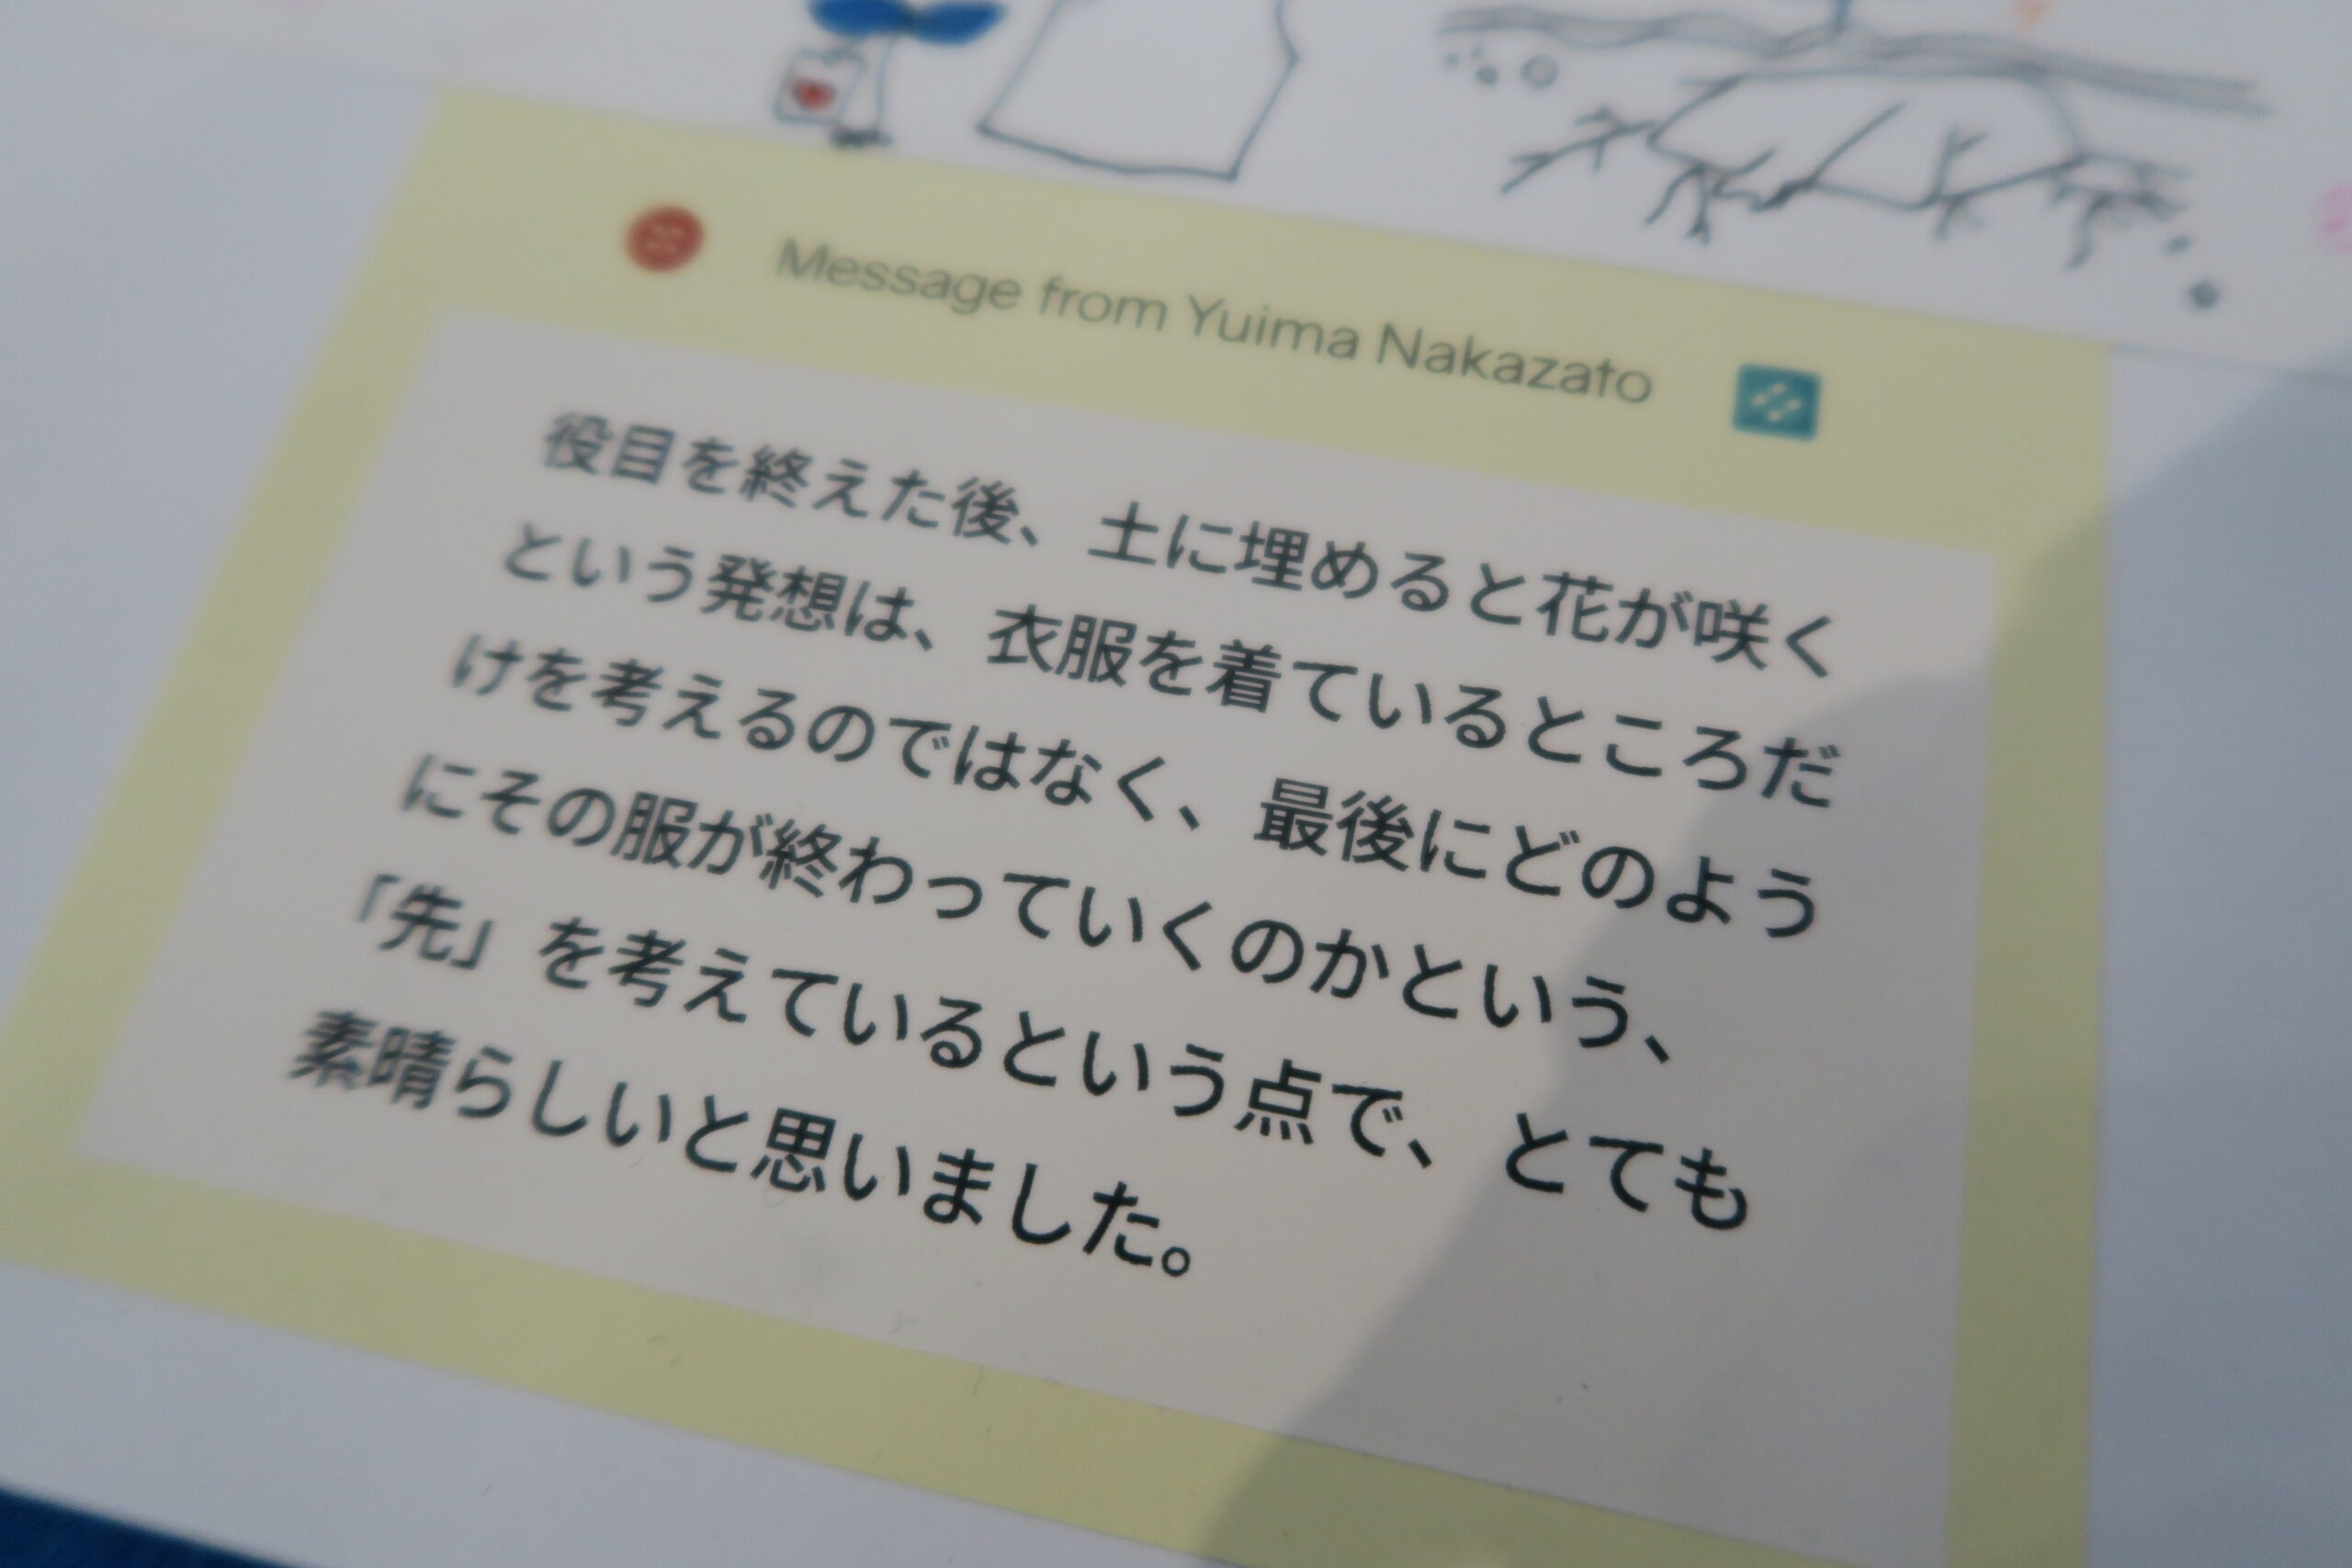 Message from Yuima Nakazato
役目を終えた後、土に埋めると花が咲く
という発想は、衣服を着ているところだ
けを考えるのではなく、最後にどのよう
にその服が終わっていくのかという、
「先」を考えているという点で、とても
素晴らしいと思いました。